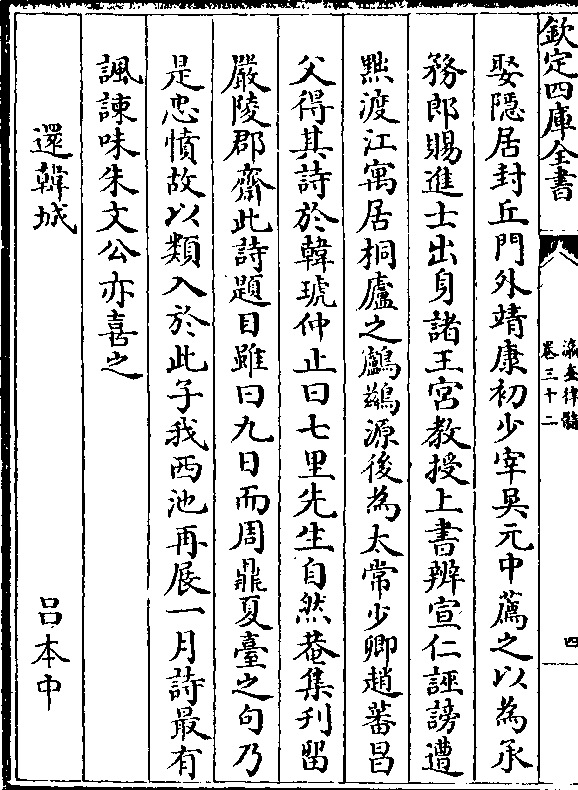 欽定四庫全書
瀛奎律髓
卷三十二
四
娶隱居封丘門外靖康初少宰吳元中薦之以為承
務郎賜進士出身諸王宮教授上書辨宣仁誣謗遭
㸃渡江寓居桐廬之鸕鷀源後為太常少卿趙蕃昌
父得其詩於韓琥仲止曰七里先生自然菴集刋留
嚴陵郡齋此詩題目雖曰九日而周鼎夏臺之句乃
是忠憤故以類入於此子我西池再展一月詩最有
諷諫味朱文公亦喜之
還韓城
呂本中